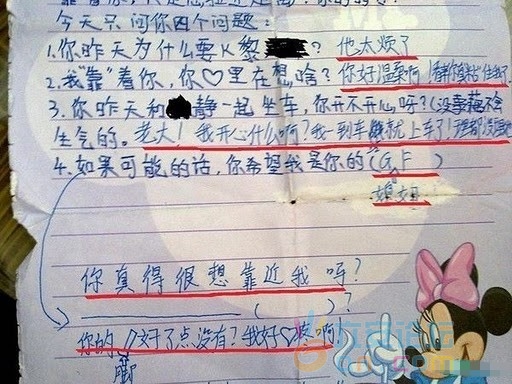 今天只问你四个问题：
1.你昨天为什么要K黎？他太烦了
2.我"靠"着你，你♡里在想啥？你好温柔啊！
3.你昨天和静一起坐车，你开不开心呀？(没事
生气的。老大！我开心什么啊？我一到车就上车了！
4.如果可能的话，你希望我是你的(G.F)
媳妇
你真得很想靠近我呀？
( )？
你的好了点没有？我好♡疼啊！
脚